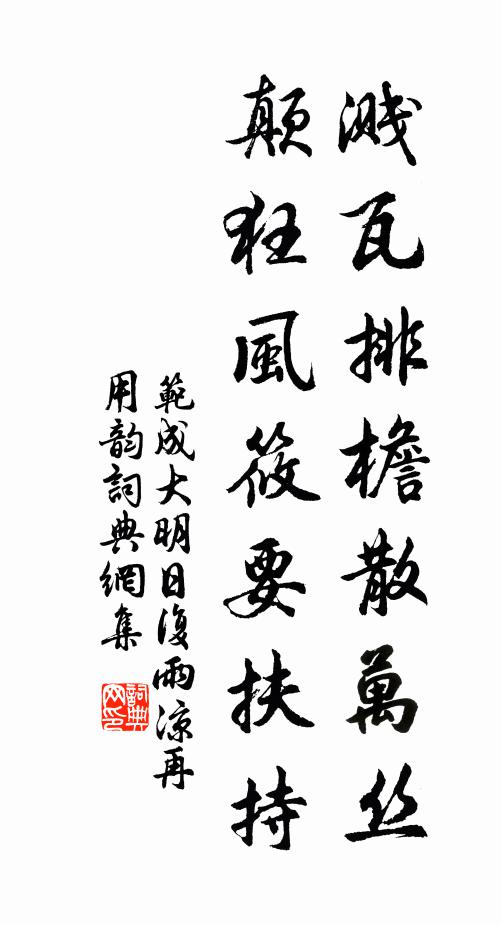 濺瓦排檐散萬丝
顛狂風筱要扶持
範成大明日復雨凉再
用韵詞典網集
詞典网印